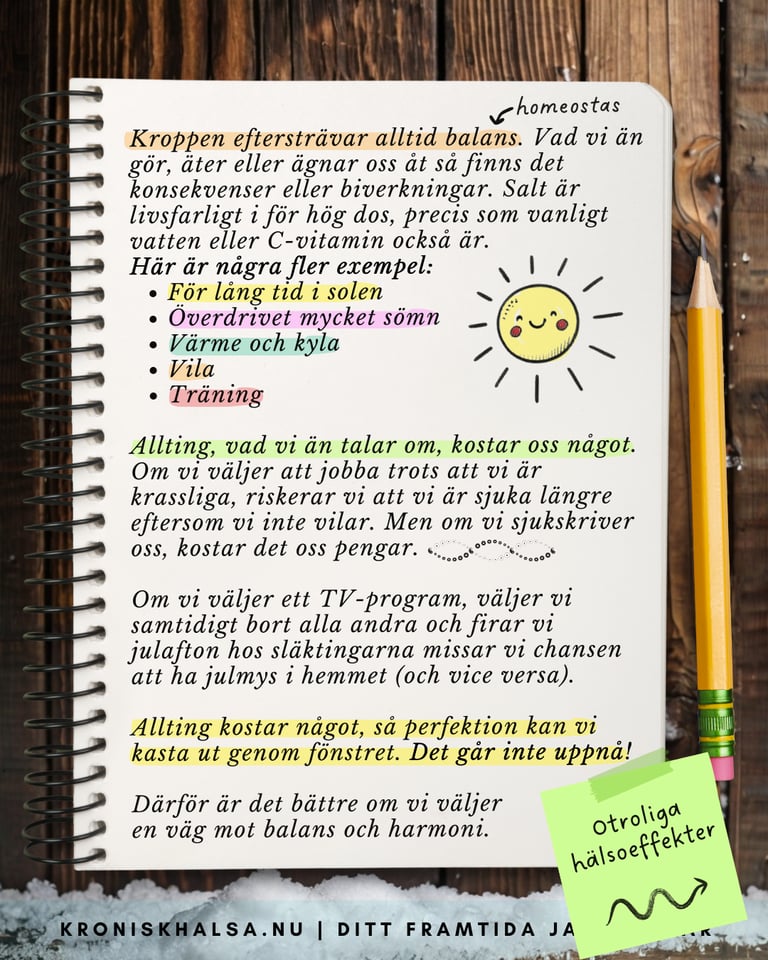 homeostas
Kroppen eftersträvar alltid balans. Vad vi än
gör, äter eller ägnar oss åt så finns det
konsekvenser eller biverkningar. Salt är
livsfarligt i för hög dos, precis som vanligt
vatten eller C-vitamin också är.
Här är några fler exempel:
• För lång tid i solen
• Överdrivet mycket sömn
• Värme och kyla
• Vila
• Träning
Allting, vad vi än talar om, kostar oss något.
Om vi väljer att jobba trots att vi är
krassliga, riskerar vi att vi är sjuka längre
eftersom vi inte vilar. Men om vi sjukskriver
oss, kostar det oss pengar.
Om vi väljer ett TV-program, väljer vi
samtidigt bort alla andra och firar vi
julafton hos släktingarna missar vi chansen
att ha julmys i hemmet (och vice versa).
Allting kostar något, så perfektion kan vi
kasta ut genom fönstret. Det går inte uppnå!
Därför är det bättre om vi väljer
en väg mot balans och harmoni.
Otroliga
hälsoeffekter
KRONISKHALSA.NU | DITT FRAMTIDA